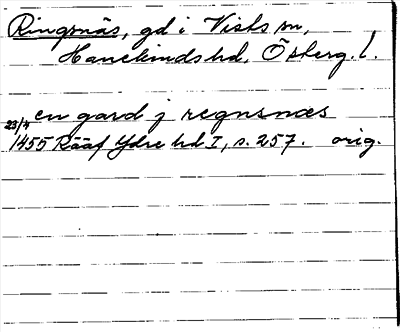 Ringsnäs, gd i Vists sn,
Hanekinds hd, Östergl.
en gard j regnsnæs
23/4 1455 Rääf Ydre hd I, s. 257. orig.